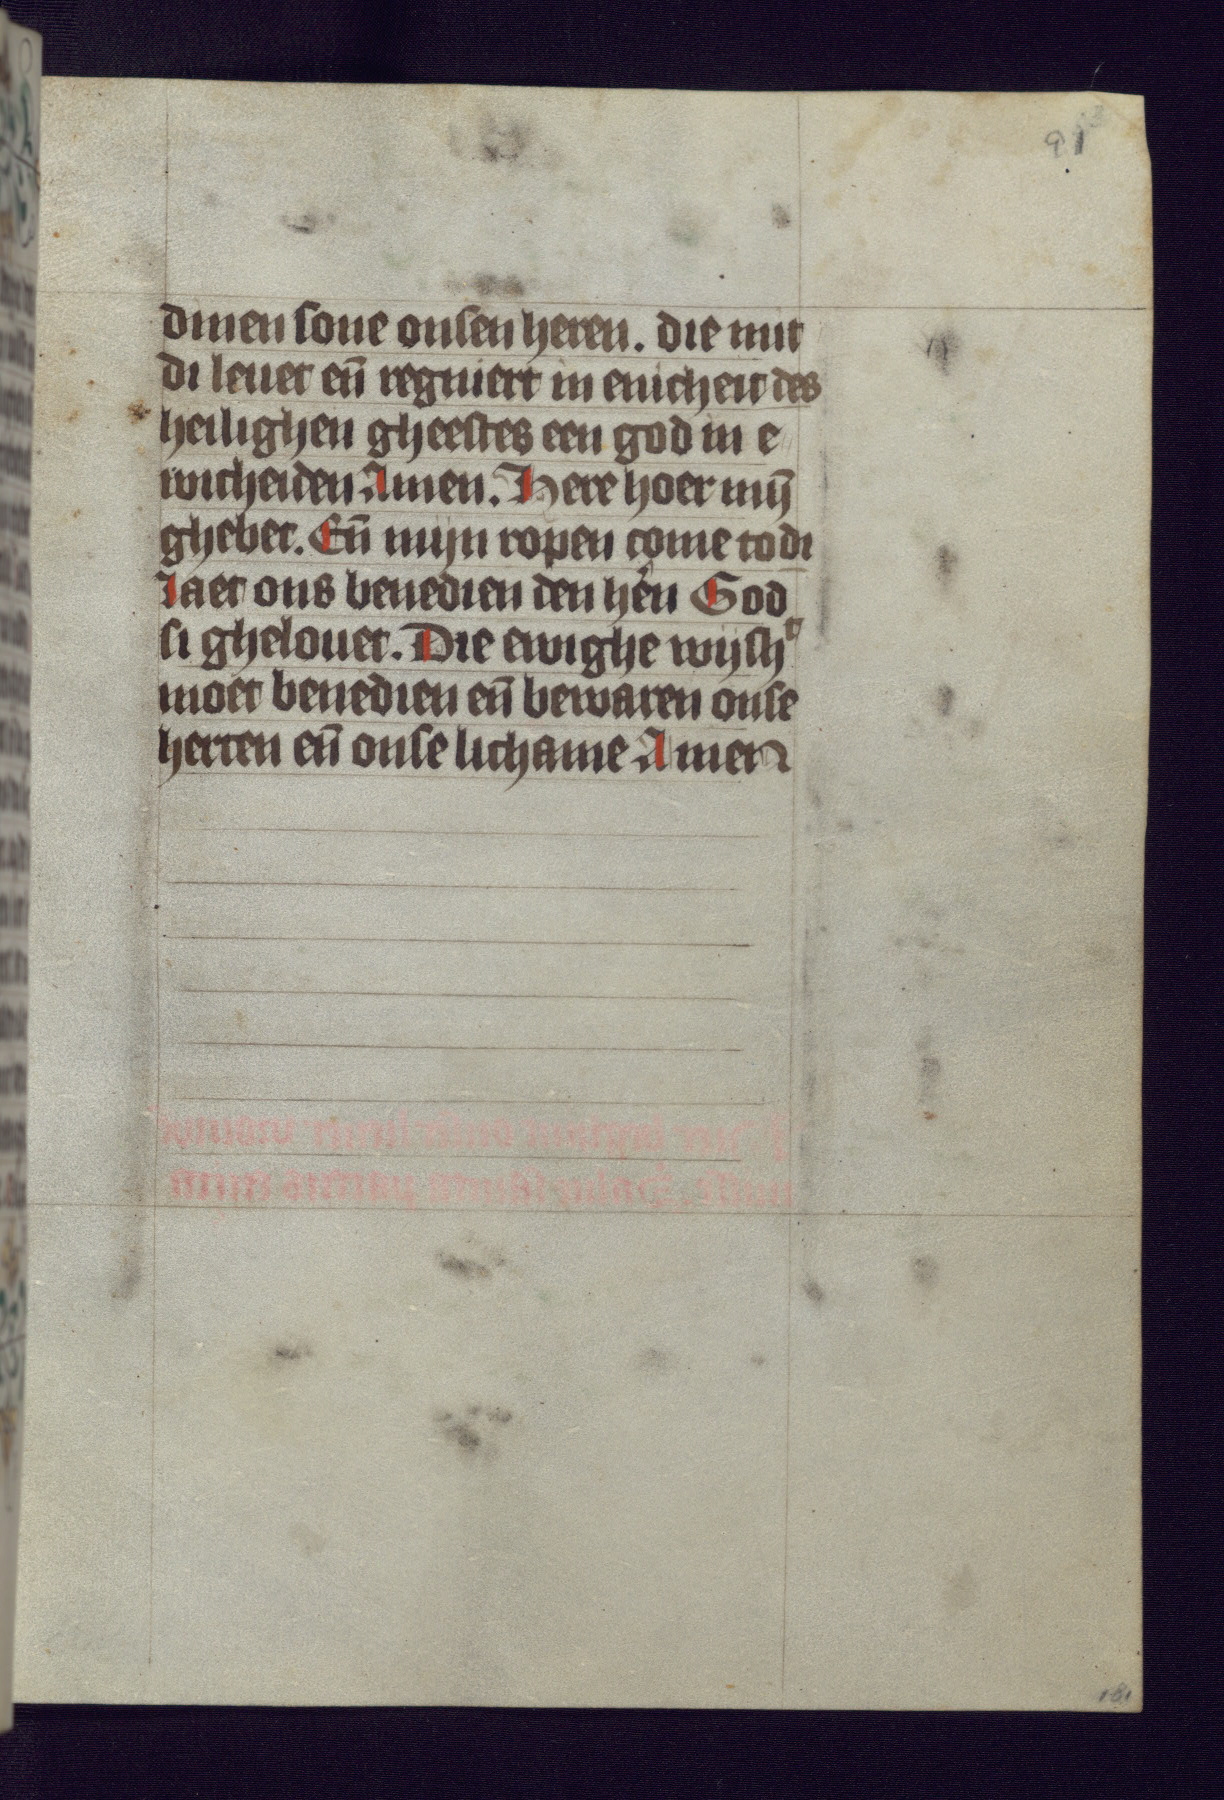 dinen sone onsen heren. die mit
di leuet en̄ regniert in enicheit des
heilighen gheestes een god in e
wicheiden Amen. Here hoer mij̄
ghebet. En̄ mijn ropen come to di
laet ons benedien den hēn God
si ghelouet. Die ewighe wijsh
moet benedien en̄ bewaren onse
herten en̄ onse lichame Amen
181